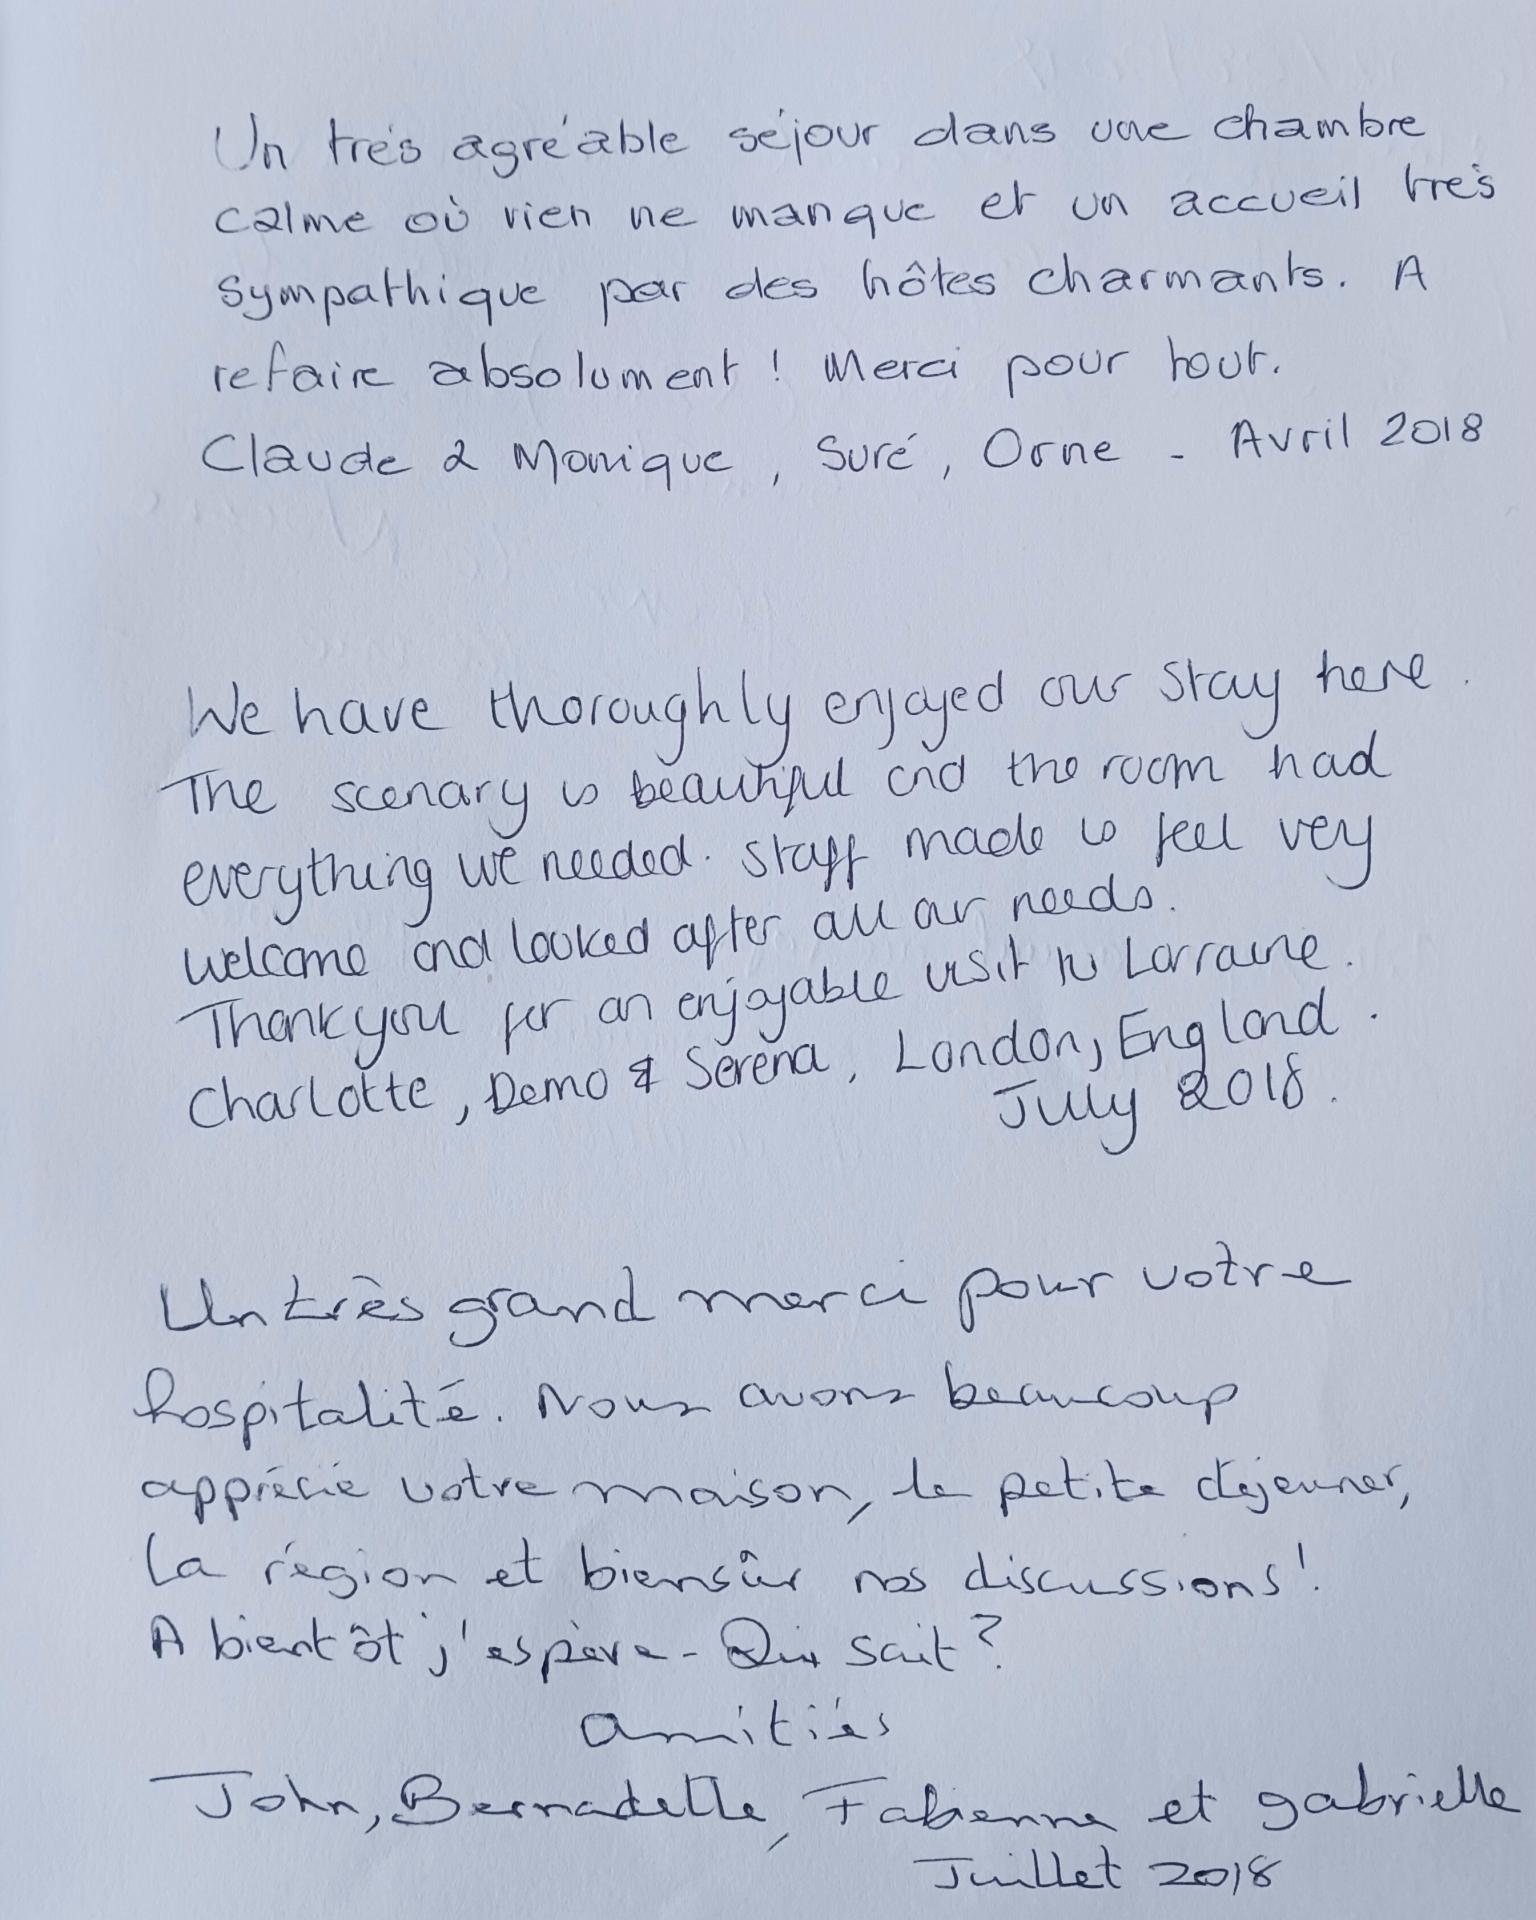 Un très agréable séjour dans une chambre
calme où rien ne manque et un accueil très
sympathique par des hôtes charmants. A
refaire absolument ! Merci pour tout.
Claude & Monique, Suré, Orne - Avril 2018
We have thoroughly enjoyed our stay here.
The scenary is beautiful and the room had
everything we needed. Staff made us feel vey
welcome and looked after all our needs.
Thankyou for an enjoyable visit to Lorraine.
Charlotte, Demo & Serena, London, England.
July 2018.
Un très grand merci pour votre
hospitalité. Nous avons beaucoup
apprécié votre maison, le petite déjeuner,
la région et biensûr nos discussions!
A bientôt j'espère - Qui sait?
amitiés
John, Bernadette, Fabienne et gabrielle
Juillet 2018